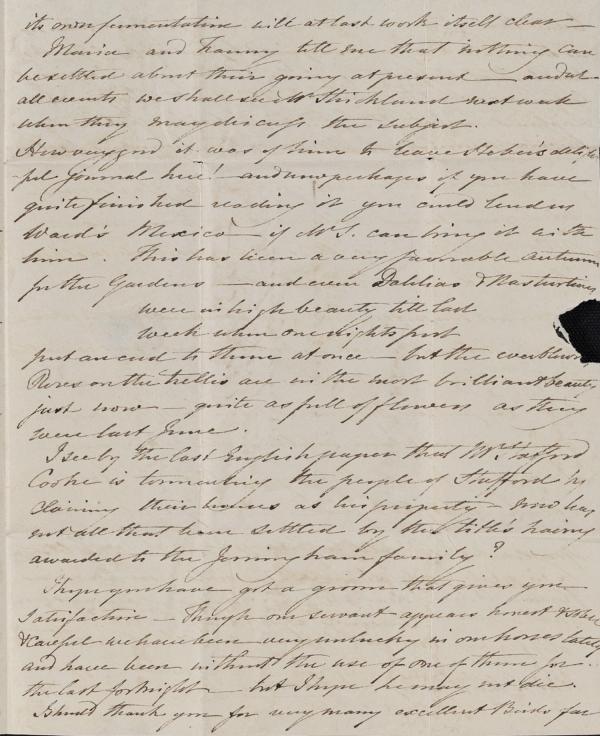 its own fermentation will at last work itself clear —
Maria and Fanny tell me that nothing can
be settled about their going at present — and at
all events we shall see Mr Strickland next week
when they may discuss the subject.
How very good it was of him to leave Heber's delight
ful Journal here! — and now perhaps if you have
quite finished reading it you could lend us
Ward's Mexico — if Mr S. can bring it with
him. This has been a very favorable Autumn
for the Gardens — and even Dahlias & Nasturtiums
were in high beauty till last
week when one night's frost
put an end to them at once — but the
Roses on the trellis are in the most brilliant beauty
just now — quite as full of flowers as they
were last June.
I see by the last English paper that Mr
Cooke is tormenting the people of Stafford by
claiming their houses as his property — now has
not all that been settled by the title's having
awarded to the Jerningham family?
I hope you have got a groom that gives you
satisfaction — Though our servant appears honest &
& careful we have been very unlucky in our horses lately
and have been without the use of one of them for
the last fortnight — but I hope he may not die.
I should thank you for very many excellent Birds far